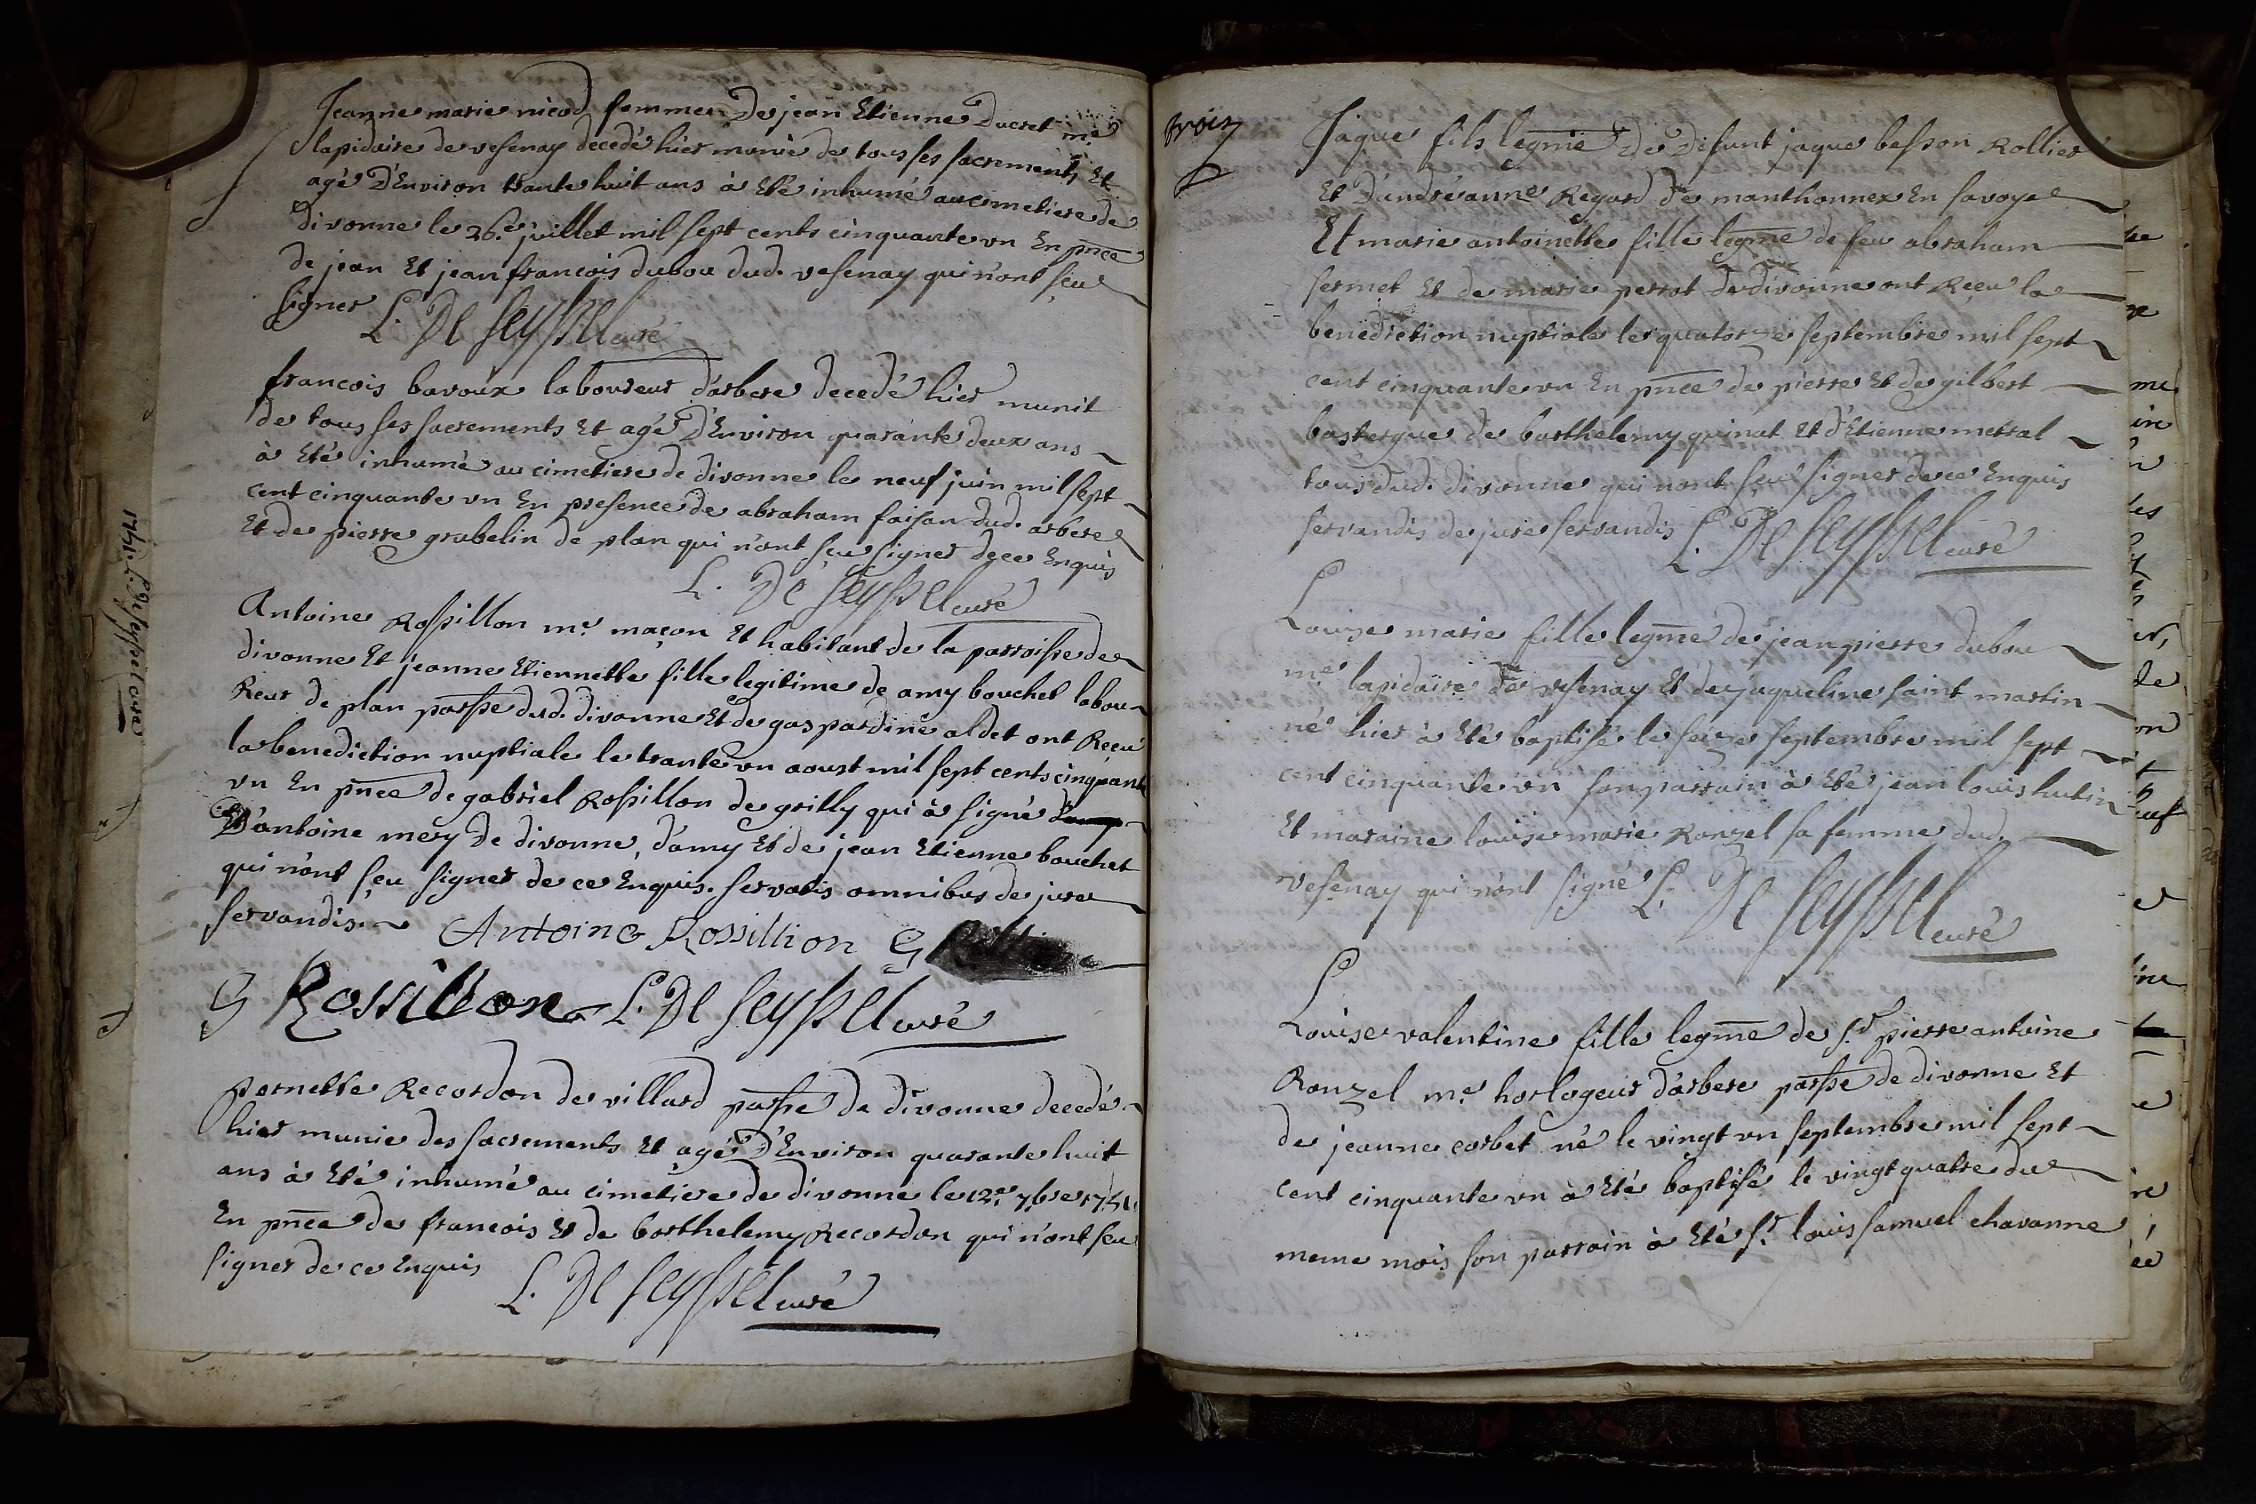 Jeanne marie nicod femme De jean Etienne Ducret me
lapidaire de vesenay decedé hier munie de tous ses sacrements Et
agé D'Environ trante huit ans à Eté inhumé au cimetiere de
Divonne le 26e juillet mil sept cents cinquante un En pnce
de jean Et jean francois dubou dud. vesenay qui n'ont sçeu
signer L. De Seyssel curé
francois bavoux laboureur d'arbere decedé hier munit
de tous ses sacrements Et agé D'Environ quarante deux ans
à Eté inhumé au cimetiere de divonne le neuf juin mil sept
cent cinquante un En presence de abraham faisan dud. arbere
Et de pierre grabelin de plan qui n'ont sçeu signer de ce Enquis
L. De Seyssel curé
Antoine Rossillon me. maçon Et habitant de la parroisse de
divonne Et jeanne Etiennette fille legitime de amy bouchet labou
Reur de plan parsse dud. divonne Et de gaspardine aldet ont Reçu
la benediction nuptiale le trante un aoust mil sept cents cinquante
un En pnce de gabriel Rossillon de grilly qui à signé
Et d'antoine mery De divonne, d'amy Et de jean Etienne bouchet
qui n'ont sçeu signer de ce Enquis. servatis omnibus de jure
servandis. Antoine Rossillion G
G Rossillon L. De Seyssel curé
pernette Recordon de villard parsse de divonne decedé
hier munie des sacrements Et agé D'Environ quarante huit
ans à Eté inhumé au cimetiere de divonne le 12e. 7bre 1751.
En pnce de francois Et de barthelemy Recordon qui n'ont sçeu
signer de ce Enquis L. De Seyssel curé
1741. L. De Seyssel curé
trois
Jaque fils legme De Defunt jaque besson Rollier
Et D'andréanne Regard de manthonnex En savoye
Et marie antoinette fille legme de feu abraham
sermet Et de marie perrot de divonne ont Reçu la
benediction nuptiale le quatorze septembre mil sept
cent cinquante un En pnce de pierre Et de gilbert
bastergue de barthelemy quinat Et d'Etienne metral
tous dud. divonne qui n'ont sçeu signer de ce Enquis
servandis de jure servandis L. De Seyssel curé
Louise marie fille legme de jean pierre dubou
me lapidaire de vesenay Et de jaqueline saint martin
né hier à Eté baptisé le seize septembre mil sept
cent cinquante un son parrain à Eté jean louis hutin
Et maraine louise marie Ronzel sa femme dud.
vesenay qui n'ont signé L. De Seyssel curé
Louise valentine fille legme de sr. pierre antoine
Ronzel me. horlogeur d'arbere parsse de divonne Et
de jeanne corbet né le vingt un septembre mil sept
cent cinquante un à Eté baptisé le vingt quatre du
meme mois son parrain à Eté sr. louis samuel chavanne